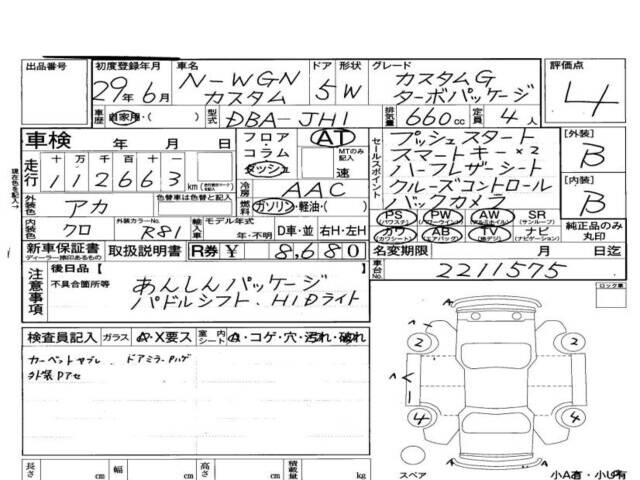 出品番号 初度登録年月 車名 ドア 形状 グレード 評価点
29年6月 N-WGN カスタム 5 W カスタムG ターボパッケージ 4
車歴 自家用・( ) 型式 DBA-JH1 排気量 660cc 定員 4人
車検 年 月 日 フロア・コラム ダッシュ AT MTのみ記入 速
走行 十万千百十一 112663km
セールスポイント プッシュスタート
スマートキー×2
ハーフレザーシート
クルーズコントロール
バックカメラ
[外装] B
[内装] B
冷房 AAC
燃料 ガソリン・軽油・( )
現在色を記入
外装色 アカ 色替車は色替と記入
内装色 クロ 外装カラーNo. R81 輸入車 モデル年式 年・不明 D車・並 右H・左H
PS (パワステ) PW (パワーウィンドウ) AW (アルミホイル) SR (サンルーフ)
カワ (カワシート) AB (エアバッグ) TV (地デジ) ナビ (ナビゲーション)
純正品のみ丸印
新車保証書 ディーラー捺印あるもの 取扱説明書 R券 ¥ 8,680 名変期限 月 日迄
注意事項 後日品 [ ]
不具合箇所等 あんしんパッケージ
パドルシフト、HIDライト
車台No. 2211575
ロック東
検査員記入 ガラス A・X要ス 室内シート A・コゲ・穴・汚れ・破れ
カーペットヨゴレ ドアミラーPハゲ
外装Pアセ
2 2
4 4
スペア
小A有・小U有
長さ cm 幅 cm 高さ cm 積載量 kg